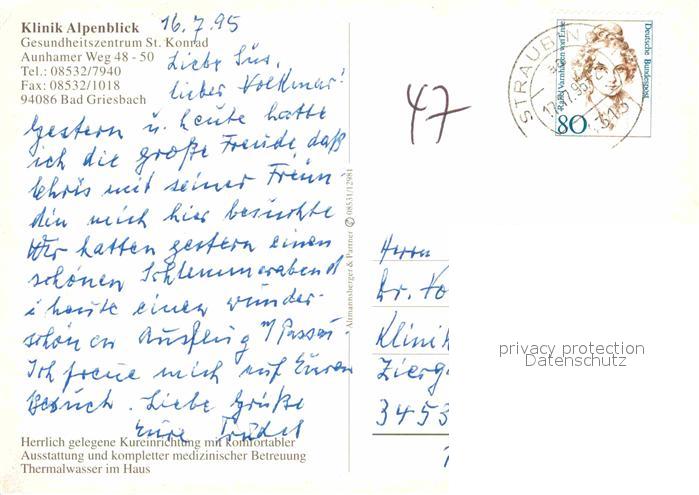 Klinik Alpenblick
Gesundheitszentrum St. Konrad
Aunhamer Weg 48 - 50
Tel.: 08532/7940
Fax: 08532/1018
94086 Bad Griesbach
16.7.95
Liebe Sus,
lieber Volkmar!
Gestern u. heute hatte
ich die große Freude daß
Chris mit seiner Freun-
din mich hier besuchte
Wir hatten gestern einen
schönen Schlemmerabend
u heute einen wunder-
schönen Ausflug n/Passau
Ich freue mich auf Euren
Besuch. Liebe Grüße
Eure Trudel
Herrlich gelegene Kureinrichtung mit komfortabler
Ausstattung und kompletter medizinischer Betreuung
Thermalwasser im Haus
Altmannsberger & Partner © 08531/12981
47
STRAUBING
Rahel Varnhagen von Ense
Deutsche Bundespost
80
Herrn
Dr. Vo
Klinik
Zierg
3453
privacy protection
Datenschutz